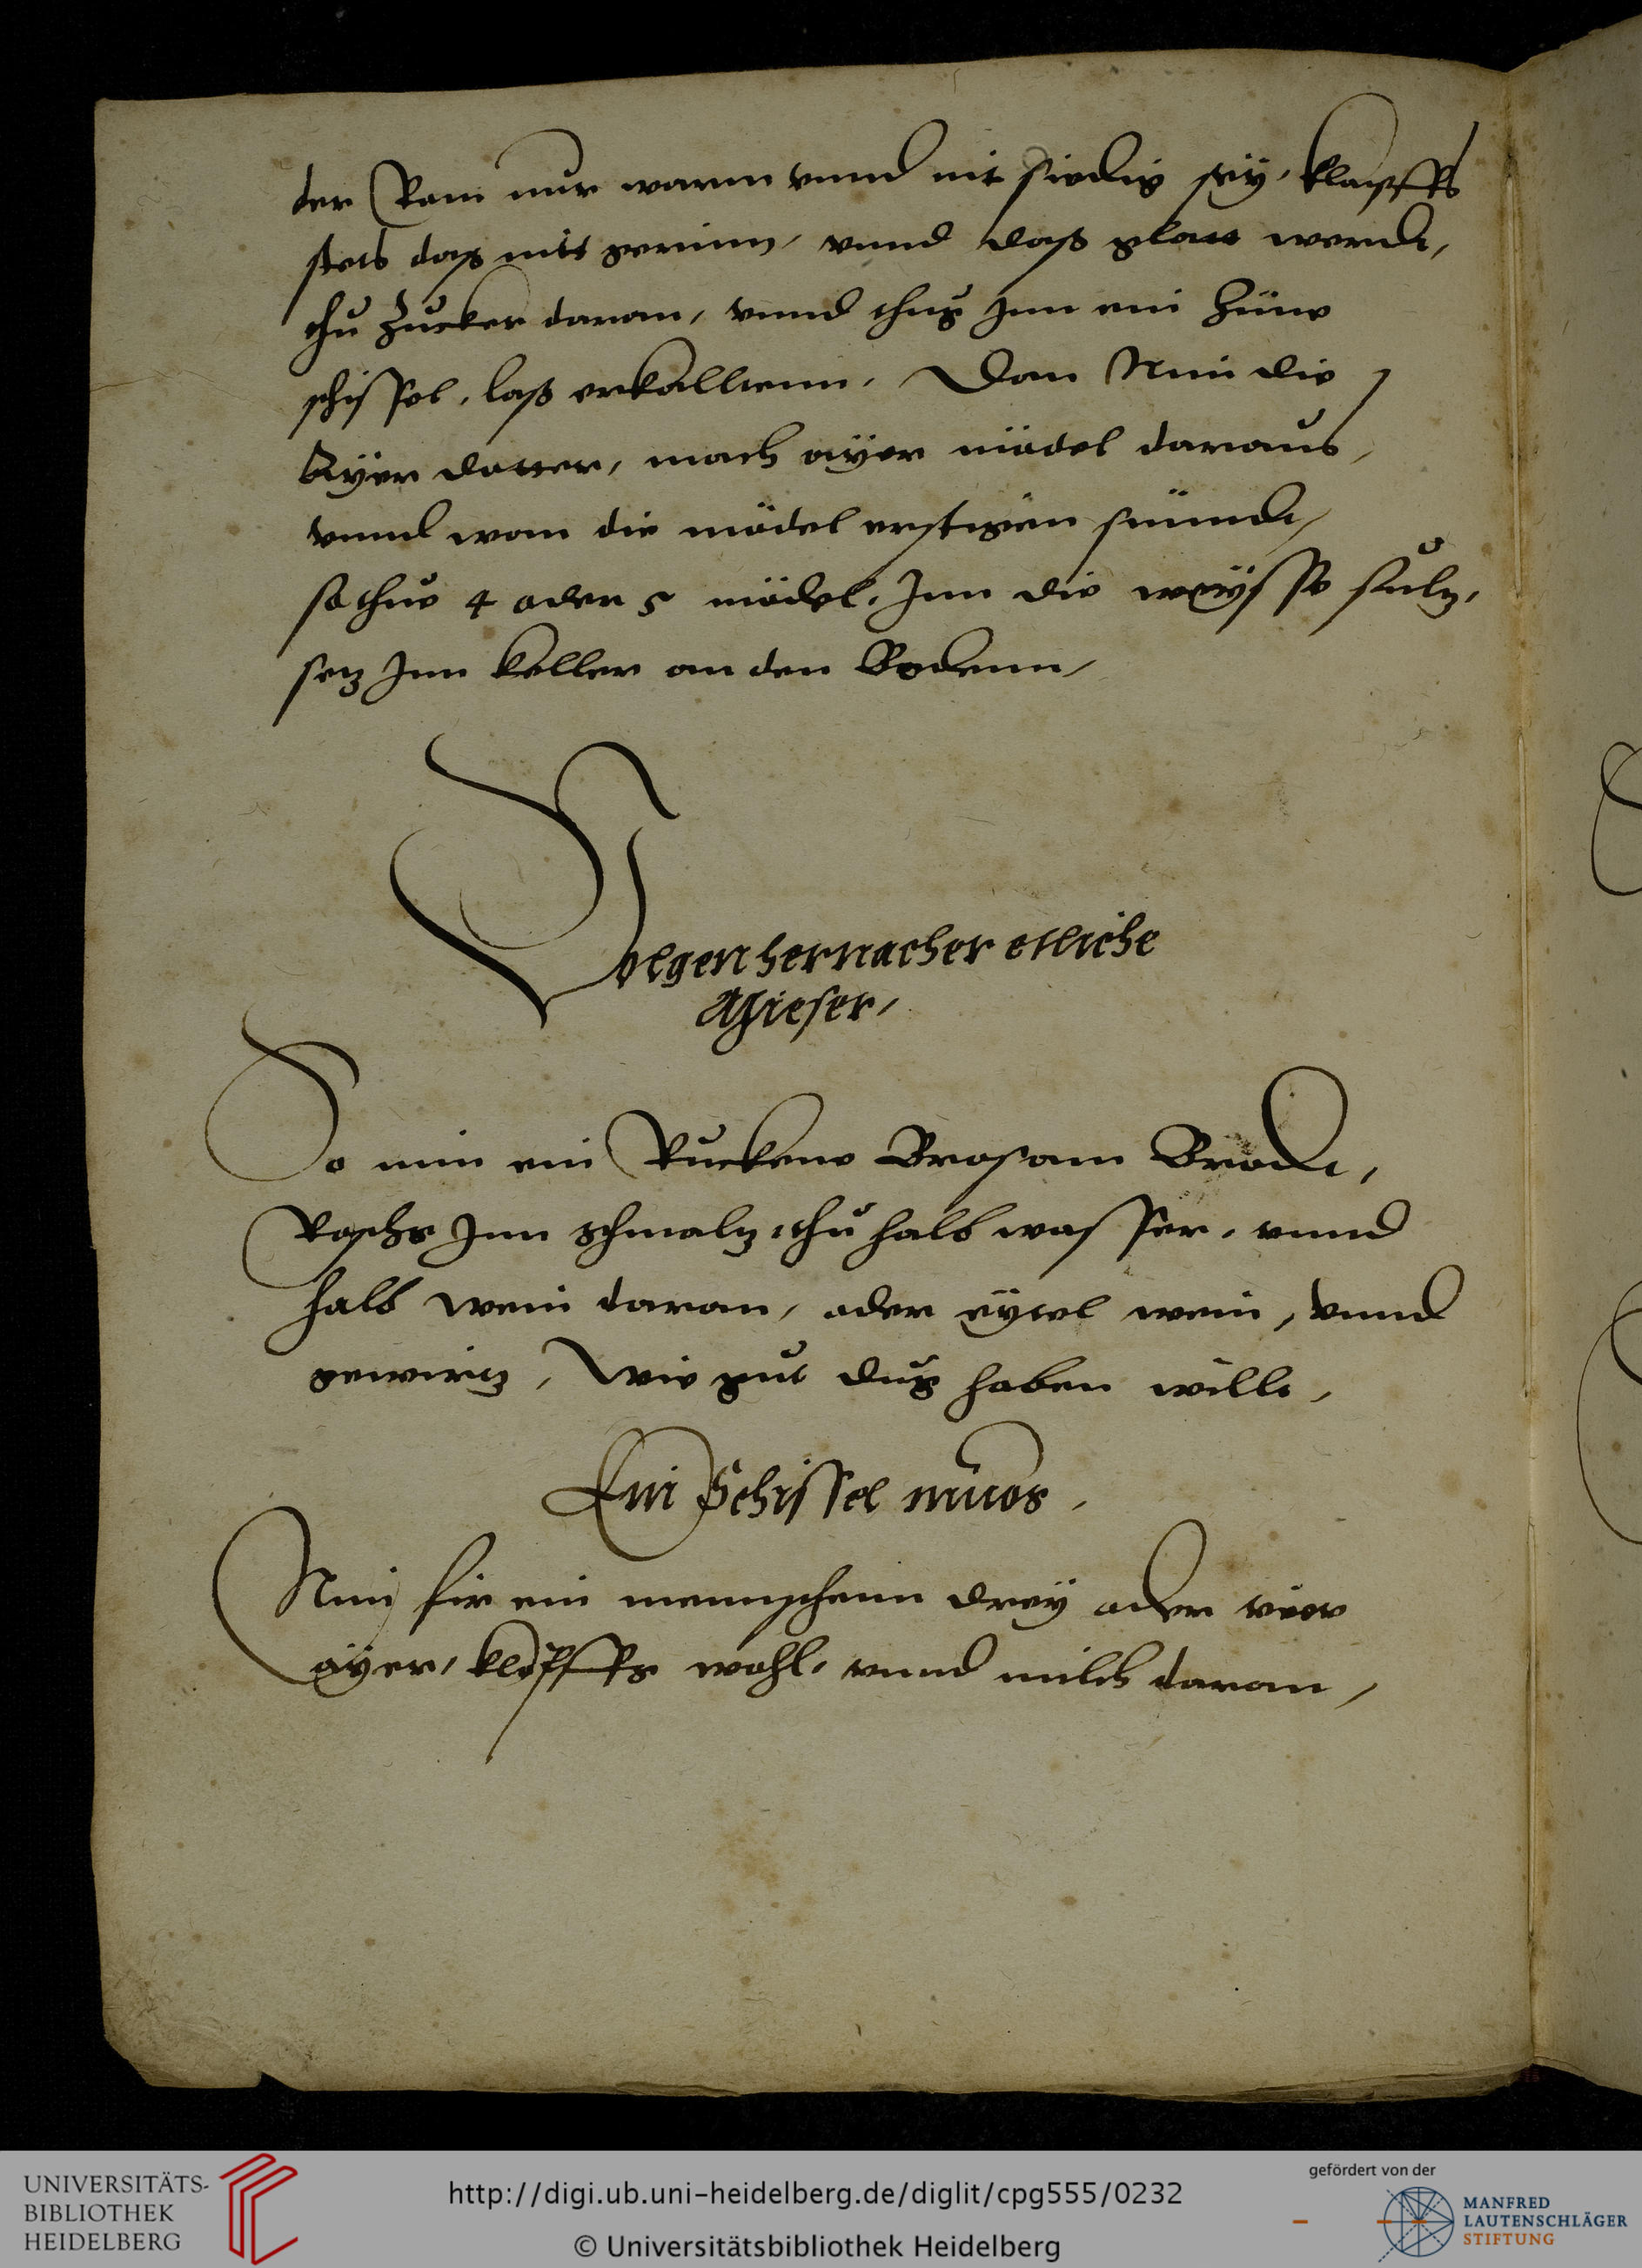 der Ram nur warm vnnd nit siedig seÿ, klopffs
stets das nit gerinn, vnnd das glatt werdt,
thu Zucker daran, vnnd thus Inn ein Züne
schissel, laß erkalltenn, Dan Nim die
Aÿer dotter, mach aÿer mödel daraus,
vnnd wan die mödel erstigen sinndt,
so thue 4 oder 5 mödel, Inn die weÿsse sulz,
setz Inn keller an den Bodenn,
Volgen hernacher etliche
Mieser,
So nim ein Ruckene Brosam Brodt,
Roschs Inn schmaltz, thu halb wasser, vnnd
halb wein daran, oder eÿtel wein, vnnd
gewirtz, Wie gut dus haben willt,
Ein Schissel muos,
Nim fir ein mennschenn dreÿ oder vier
aÿer, klopffs wohl, vnnd milch daran,
UNIVERSITÄTS-
BIBLIOTHEK
HEIDELBERG
http://digi.ub.uni-heidelberg.de/diglit/cpg555/0232
© Universitätsbibliothek Heidelberg
gefördert von der
MANFRED
LAUTENSCHLÄGER
STIFTUNG